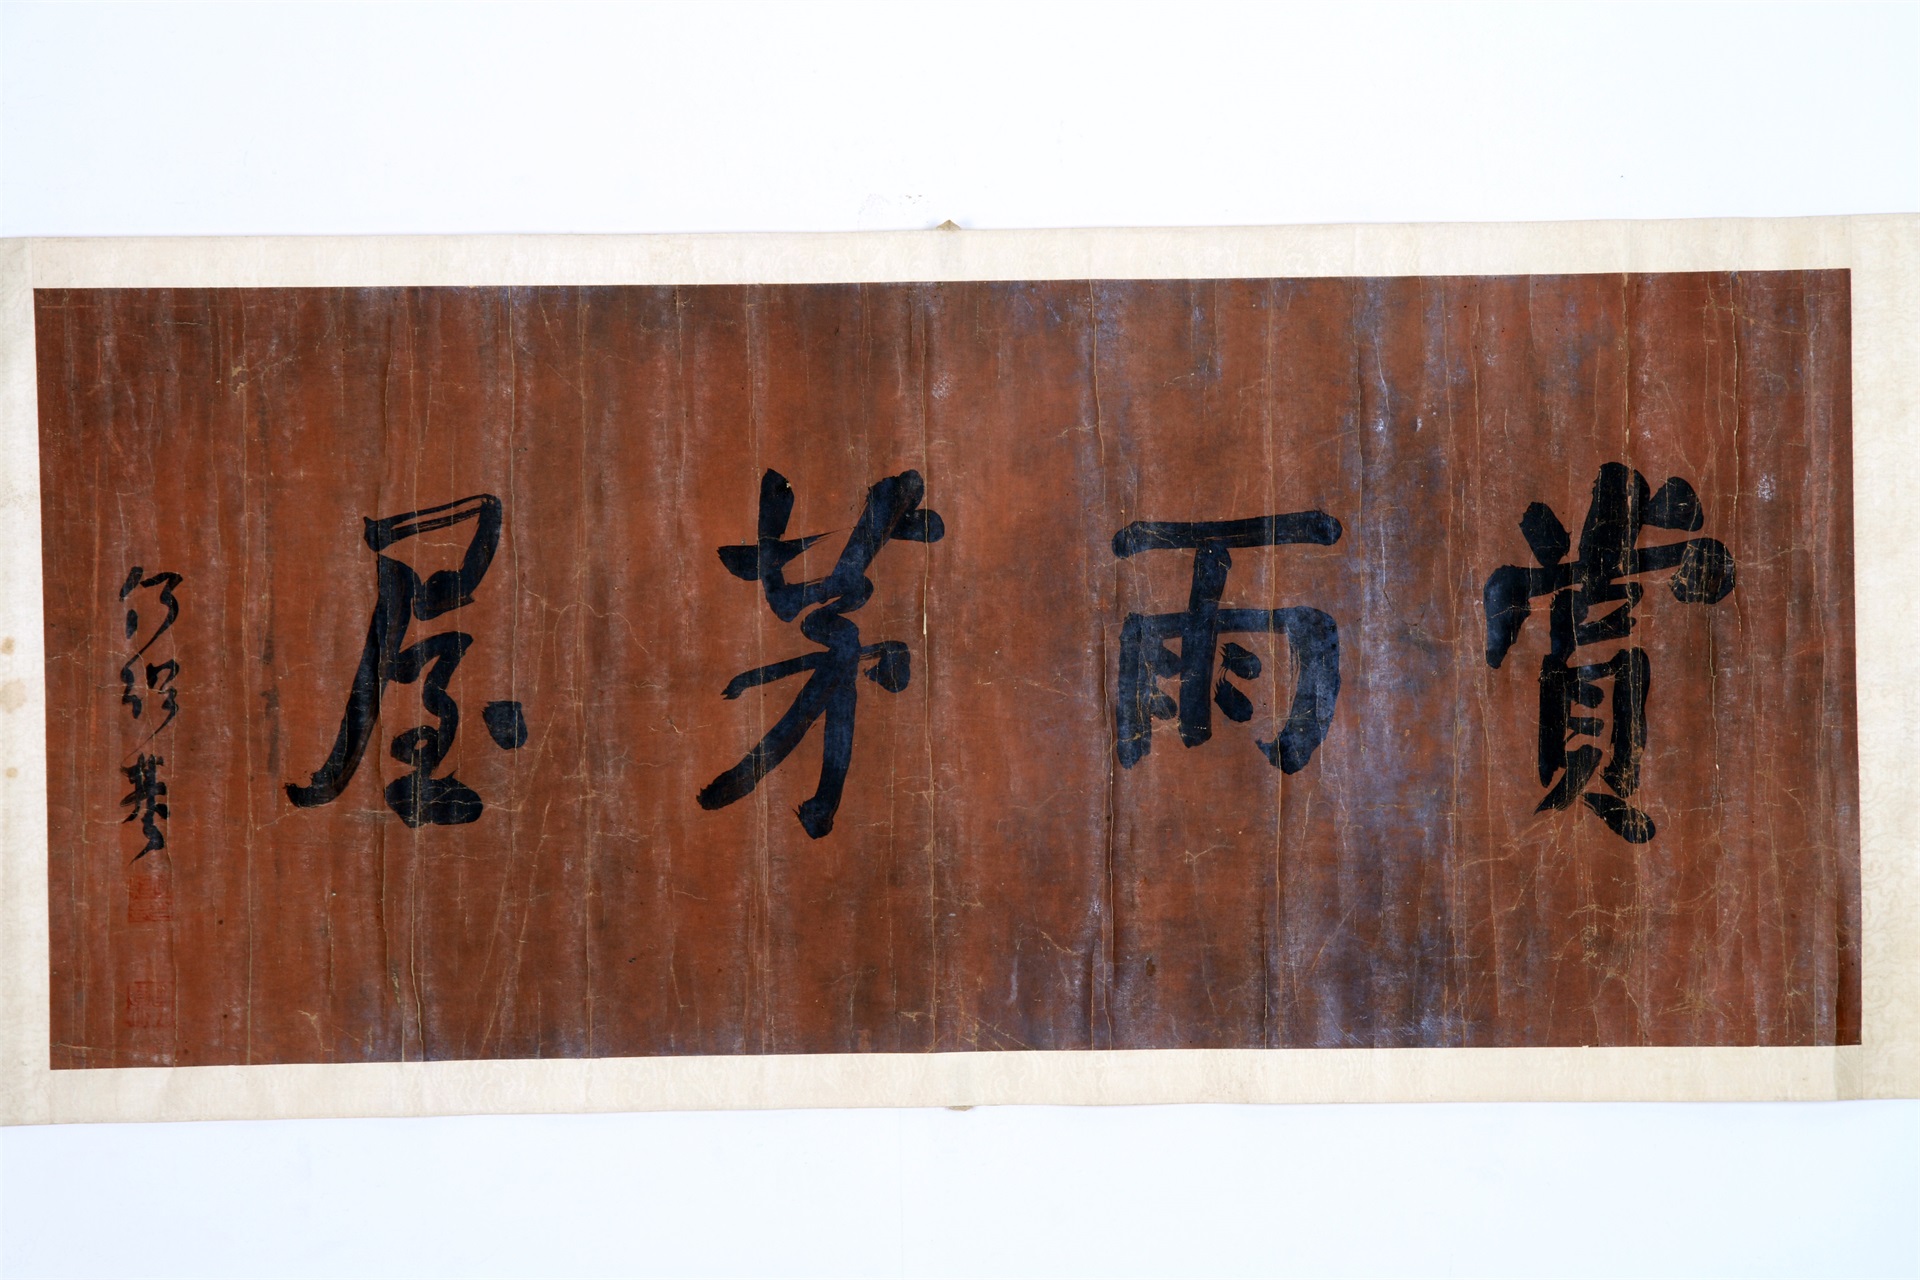 賞雨茅屋
何紹基